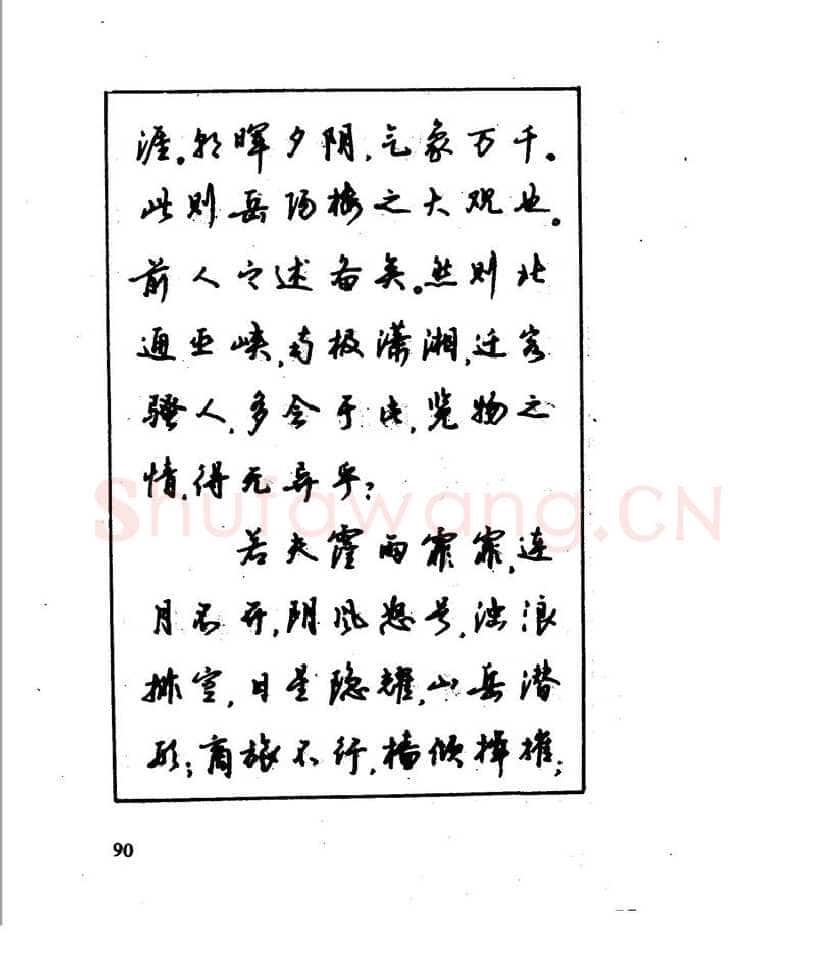 涯。朝晖夕阴,气象万千。
此则岳阳楼之大观也。
前人之述备矣。然则北
通巫峡,南极潇湘,迁客
骚人,多会于此,览物之
情,得无异乎?
Shufawang.CN
若夫霪雨霏霏,连
月不开,阴风怒号,浊浪
排空,日星隐耀,山岳潜
形;商旅不行,樯倾楫摧;
90